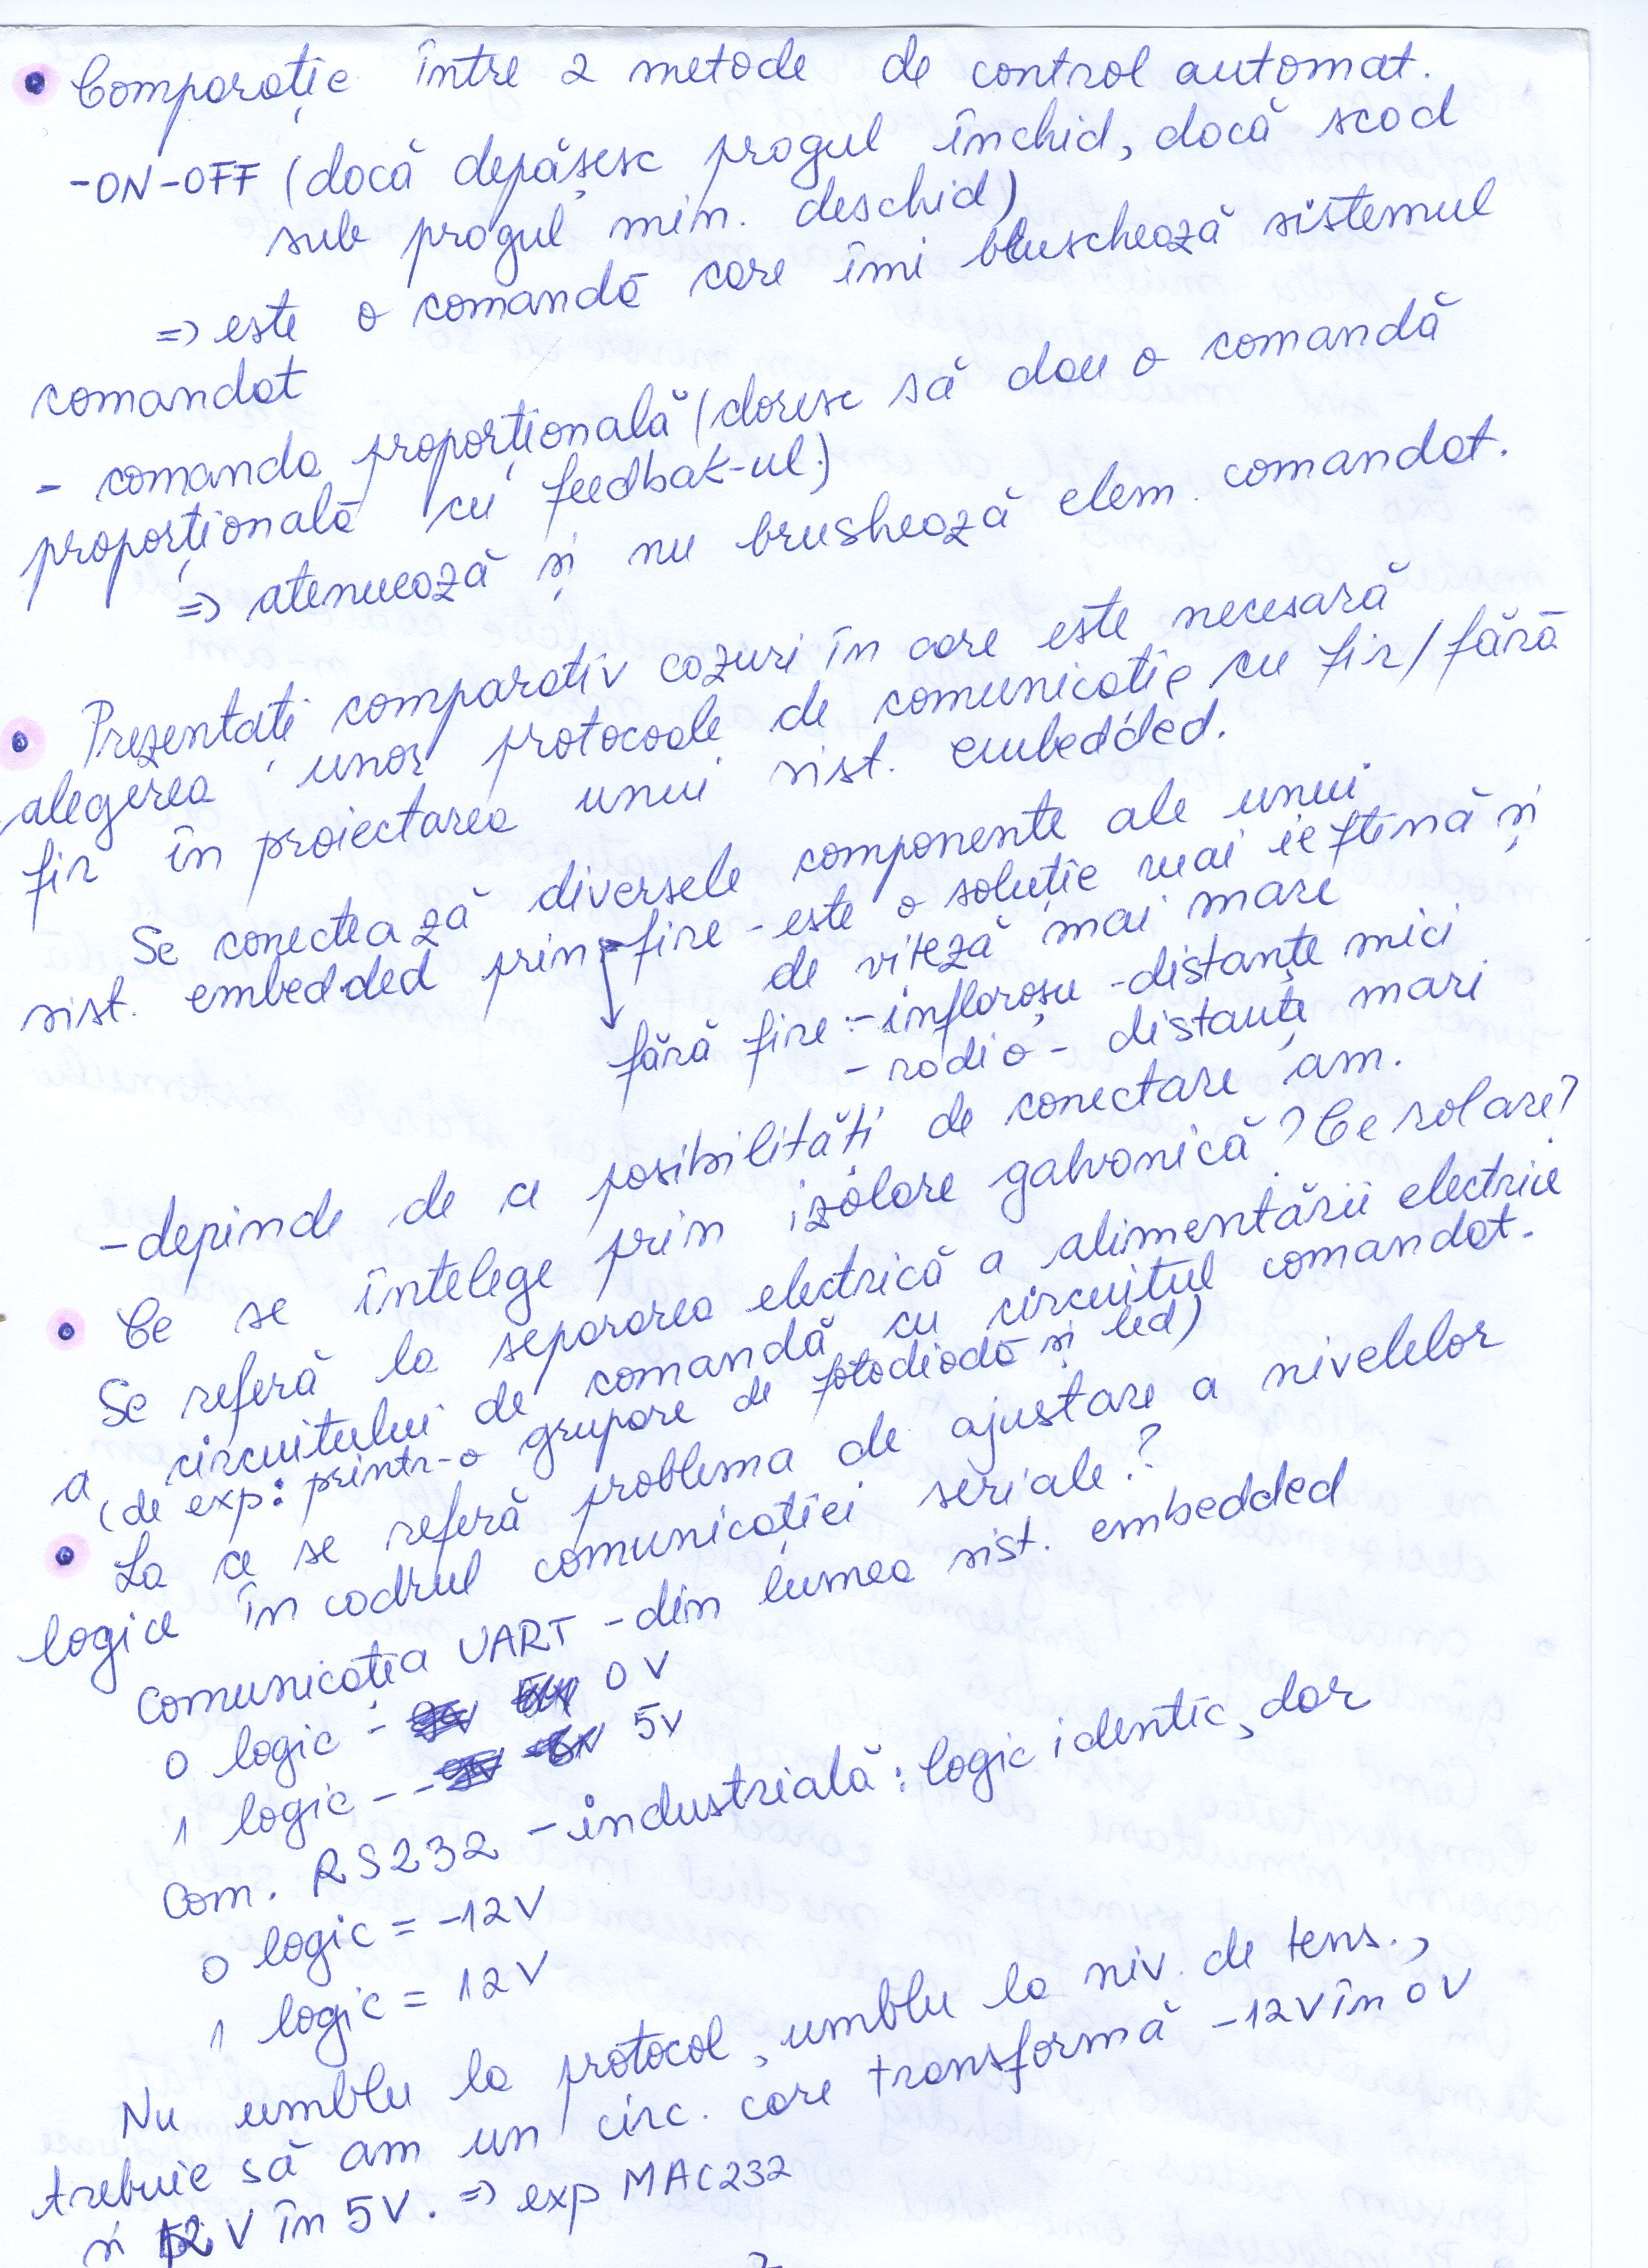 • Comparație între 2 metode de control automat.
-ON-OFF (dacă depășesc pragul închid, dacă scad
sub pragul min. deschid)
=> este o comandă care îmi bruschează sistemul
comandat
- comanda proporțională (doresc să dau o comandă
proporțională cu feedbak-ul.)
=> atenuează și nu brushează elem. comandat.
• Prezentați comparativ cazuri în care este necesară
alegerea unor protocoale de comunicație cu fir/fără
fir în proiectarea unui sist. embedded.
Se conectează diversele componente ale unui
sist. embedded prin fire - este o soluție mai ieftină și
de viteză mai mare
fără fire: - inflaroșu - distanțe mici
- radio - distanțe mari
- depinde de ce posibilități de conectare am.
• Ce se înțelege prin izolare galvanică? Ce rol are?
Se referă la separarea electrică a alimentării electrice
a circuitului de comandă cu circuitul comandat.
(de exp: printr-o grupare de fotodiodă și led)
• La ce se referă problema de ajustare a nivelelor
logice în cadrul comunicației seriale?
Comunicația UART - din lumea sist. embedded
0 logic - 0V
1 logic - 5V
Com. RS232 - industrială: logic identic, dar
0 logic = -12V
1 logic = 12V
Nu umblu la protocol, umblu la niv. de tens.,
trebuie să am un circ. care transformă -12V în 0V
și 12V în 5V. => exp MAC232